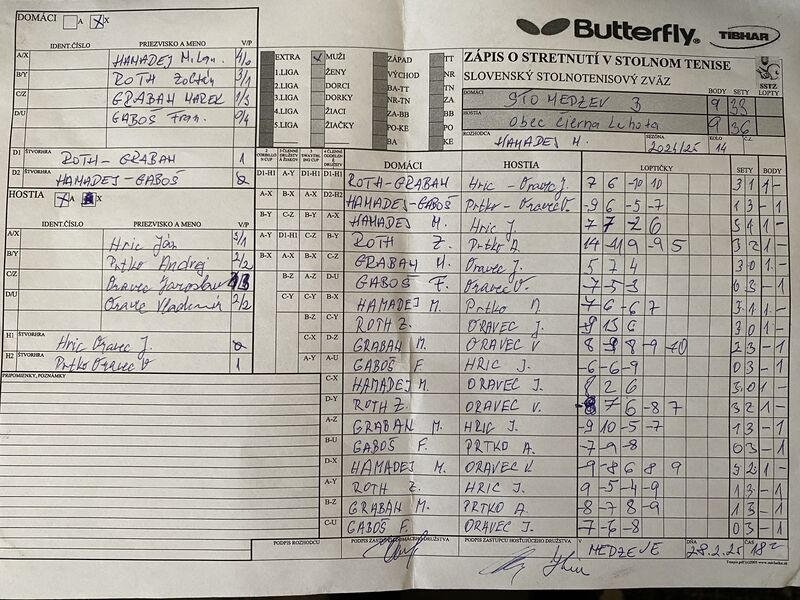 DOMÁCI A X
Butterfly® TIBHAR
IDENT.ČÍSLO PRIEZVISKO A MENO V/P
A/X HAMADEJ Milan 4/0
B/Y ROTH Zoltán 3/1
C/Z GRABAN MAREK 1/3
D/U GABOŠ Fran. 0/4
D1 ŠTVORHRA ROTH - GRABAN 1
D2 ŠTVORHRA HAMADEJ - GABOŠ
HOSTIA A X
IDENT.ČÍSLO PRIEZVISKO A MENO V/P
A/X Hric Ján 3/1
B/Y Prtko Andrej 2/2
C/Z Oravec Jaroslav
D/U Oravec Vladimír 2/2
H1 ŠTVORHRA Hric Oravec J.
H2 ŠTVORHRA Prtko Oravec V 1
PRIPOMIENKY, POZNÁMKY
EXTRA MUŽI ZÁPAD TT
1.LIGA ŽENY VÝCHOD NR
2.LIGA DORCI BA-TT TN
3.LIGA DORKY NR-TN ZA
4.LIGA ŽIACI ZA-BB BB
5.LIGA ŽIAČKY PO-KE PO
BA KE
ZÁPIS O STRETNUTÍ V STOLNOM TENISE
SLOVENSKÝ STOLNOTENISOVÝ ZVÄZ SSTZ
BODY SETY LOPTY
DOMÁCI STO MEDZEV 3 9 38
HOSTIA Obec Čierna Lehota 9 36
ROZHODCA HAMADEJ M. SEZÓNA 2024/25 KOLO 14 Č.Z.
DOMÁCI HOSTIA LOPTIČKY SETY BODY
D1-H1 A-Y D1-H1 D1-H1 ROTH-GRABAN Hric - Oravec J. 7 6 -10 10 3 1 1 -
A-X B-X A-X D2-H2 HAMADEJ-GABOŠ Prtko - Oravec V. -9 6 -5 -7 1 3 - 1
B-Y C-Z B-Y A-X HAMADEJ M. Hric J. 7 7 -2 6 3 1 1 -
A-Y D1-H1 C-Z B-Y ROTH Z. Prtko A. 14 -11 9 -9 5 3 2 1 -
B-X A-X B-X C-Z GRABAN M. Oravec J. 5 7 4 3 0 1 -
B-Z A-Z D-U GABOŠ F. Oravec V. -7 -5 -3 0 3 - 1
C-Y C-Y B-X HAMADEJ M. Prtko A. 7 6 -6 7 3 1 1 -
B-Z C-Y ROTH Z. ORAVEC J. 3 0 1 -
C-X D-Z GRABAN M. ORAVEC V 8 -9 8 -9 -10 2 3 - 1
A-Y A-U GABOŠ F. HRIC J. -6 -6 -9 0 3 - 1
C-X HAMADEJ M. ORAVEC J. 8 2 6 3 0 1 -
D-Y ROTH Z. ORAVEC V. -8 7 6 -8 7 3 2 1 -
A-Z GRABAN M. HRIC J. -9 10 -5 -7 1 3 - 1
B-U GABOŠ F. PRTKO A. -7 -9 -8 0 3 - 1
D-X HAMADEJ M. ORAVEC V. -9 -8 6 8 9 3 2 1 -
A-Y ROTH Z. HRIC J. 9 -5 -4 -9 1 3 - 1
B-Z GRABAN M. PRTKO A. -8 -7 8 -9 1 3 - 1
C-U GABOŠ F. ORAVEC J. -7 -6 -8 0 3 - 1
PODPIS ROZHODCU PODPIS ZÁSTUPCU DOMÁCEHO DRUŽSTVA PODPIS ZÁSTUPCU HOSŤUJÚCEHO DRUŽSTVA V MEDZEVE DŇA 28.2.25 ČAS 18